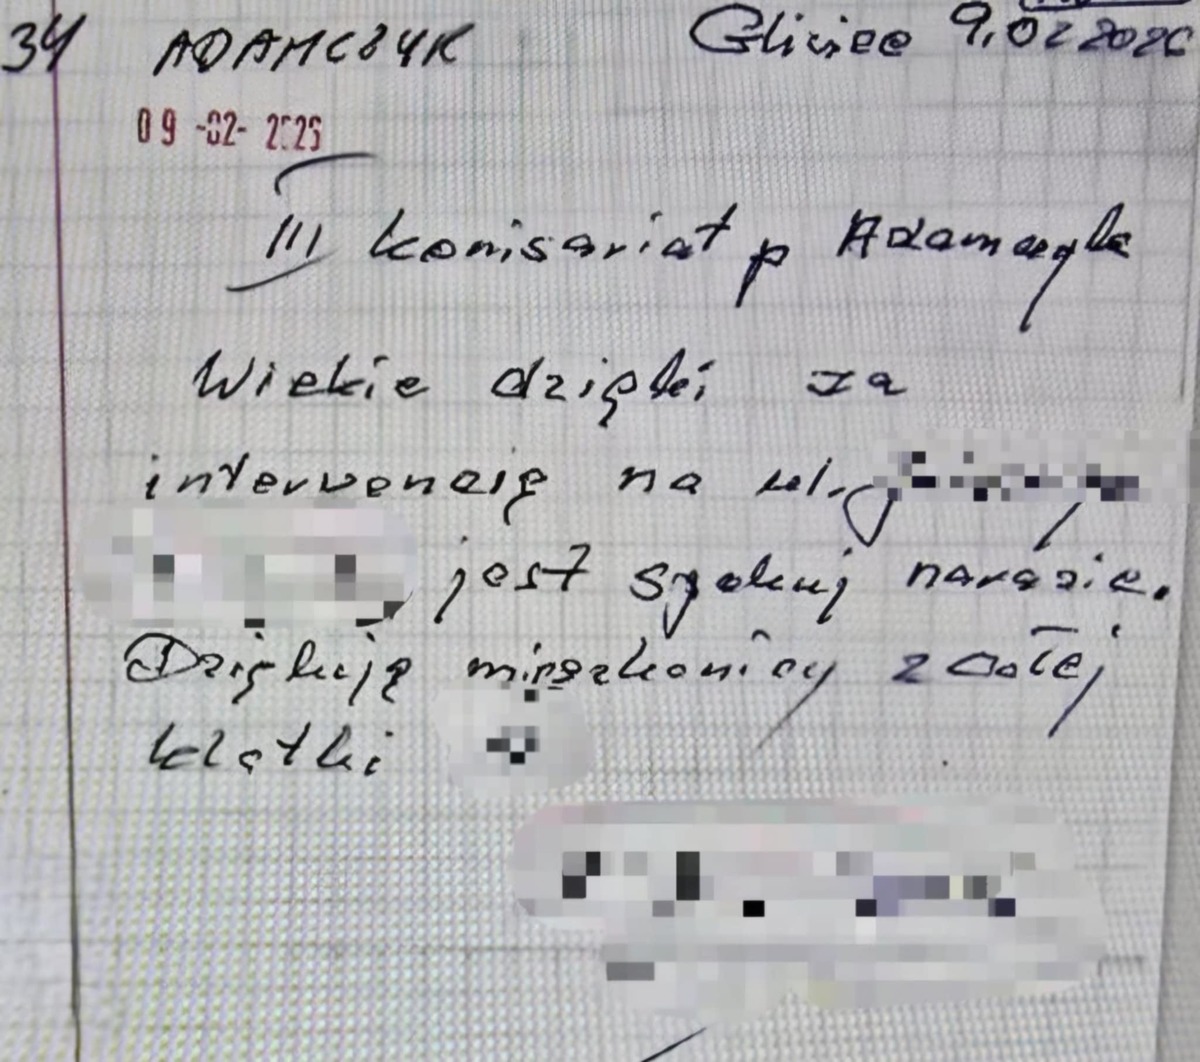 34 ADAMCZYK Gliwice 9.02 2026
09 -02- 2026
III komisariat p Adamczyk
Wiekie dzięki za
interwencję na ul.
jest spokuj narazie.
Dziękują mieszkańcy z całej
klatki